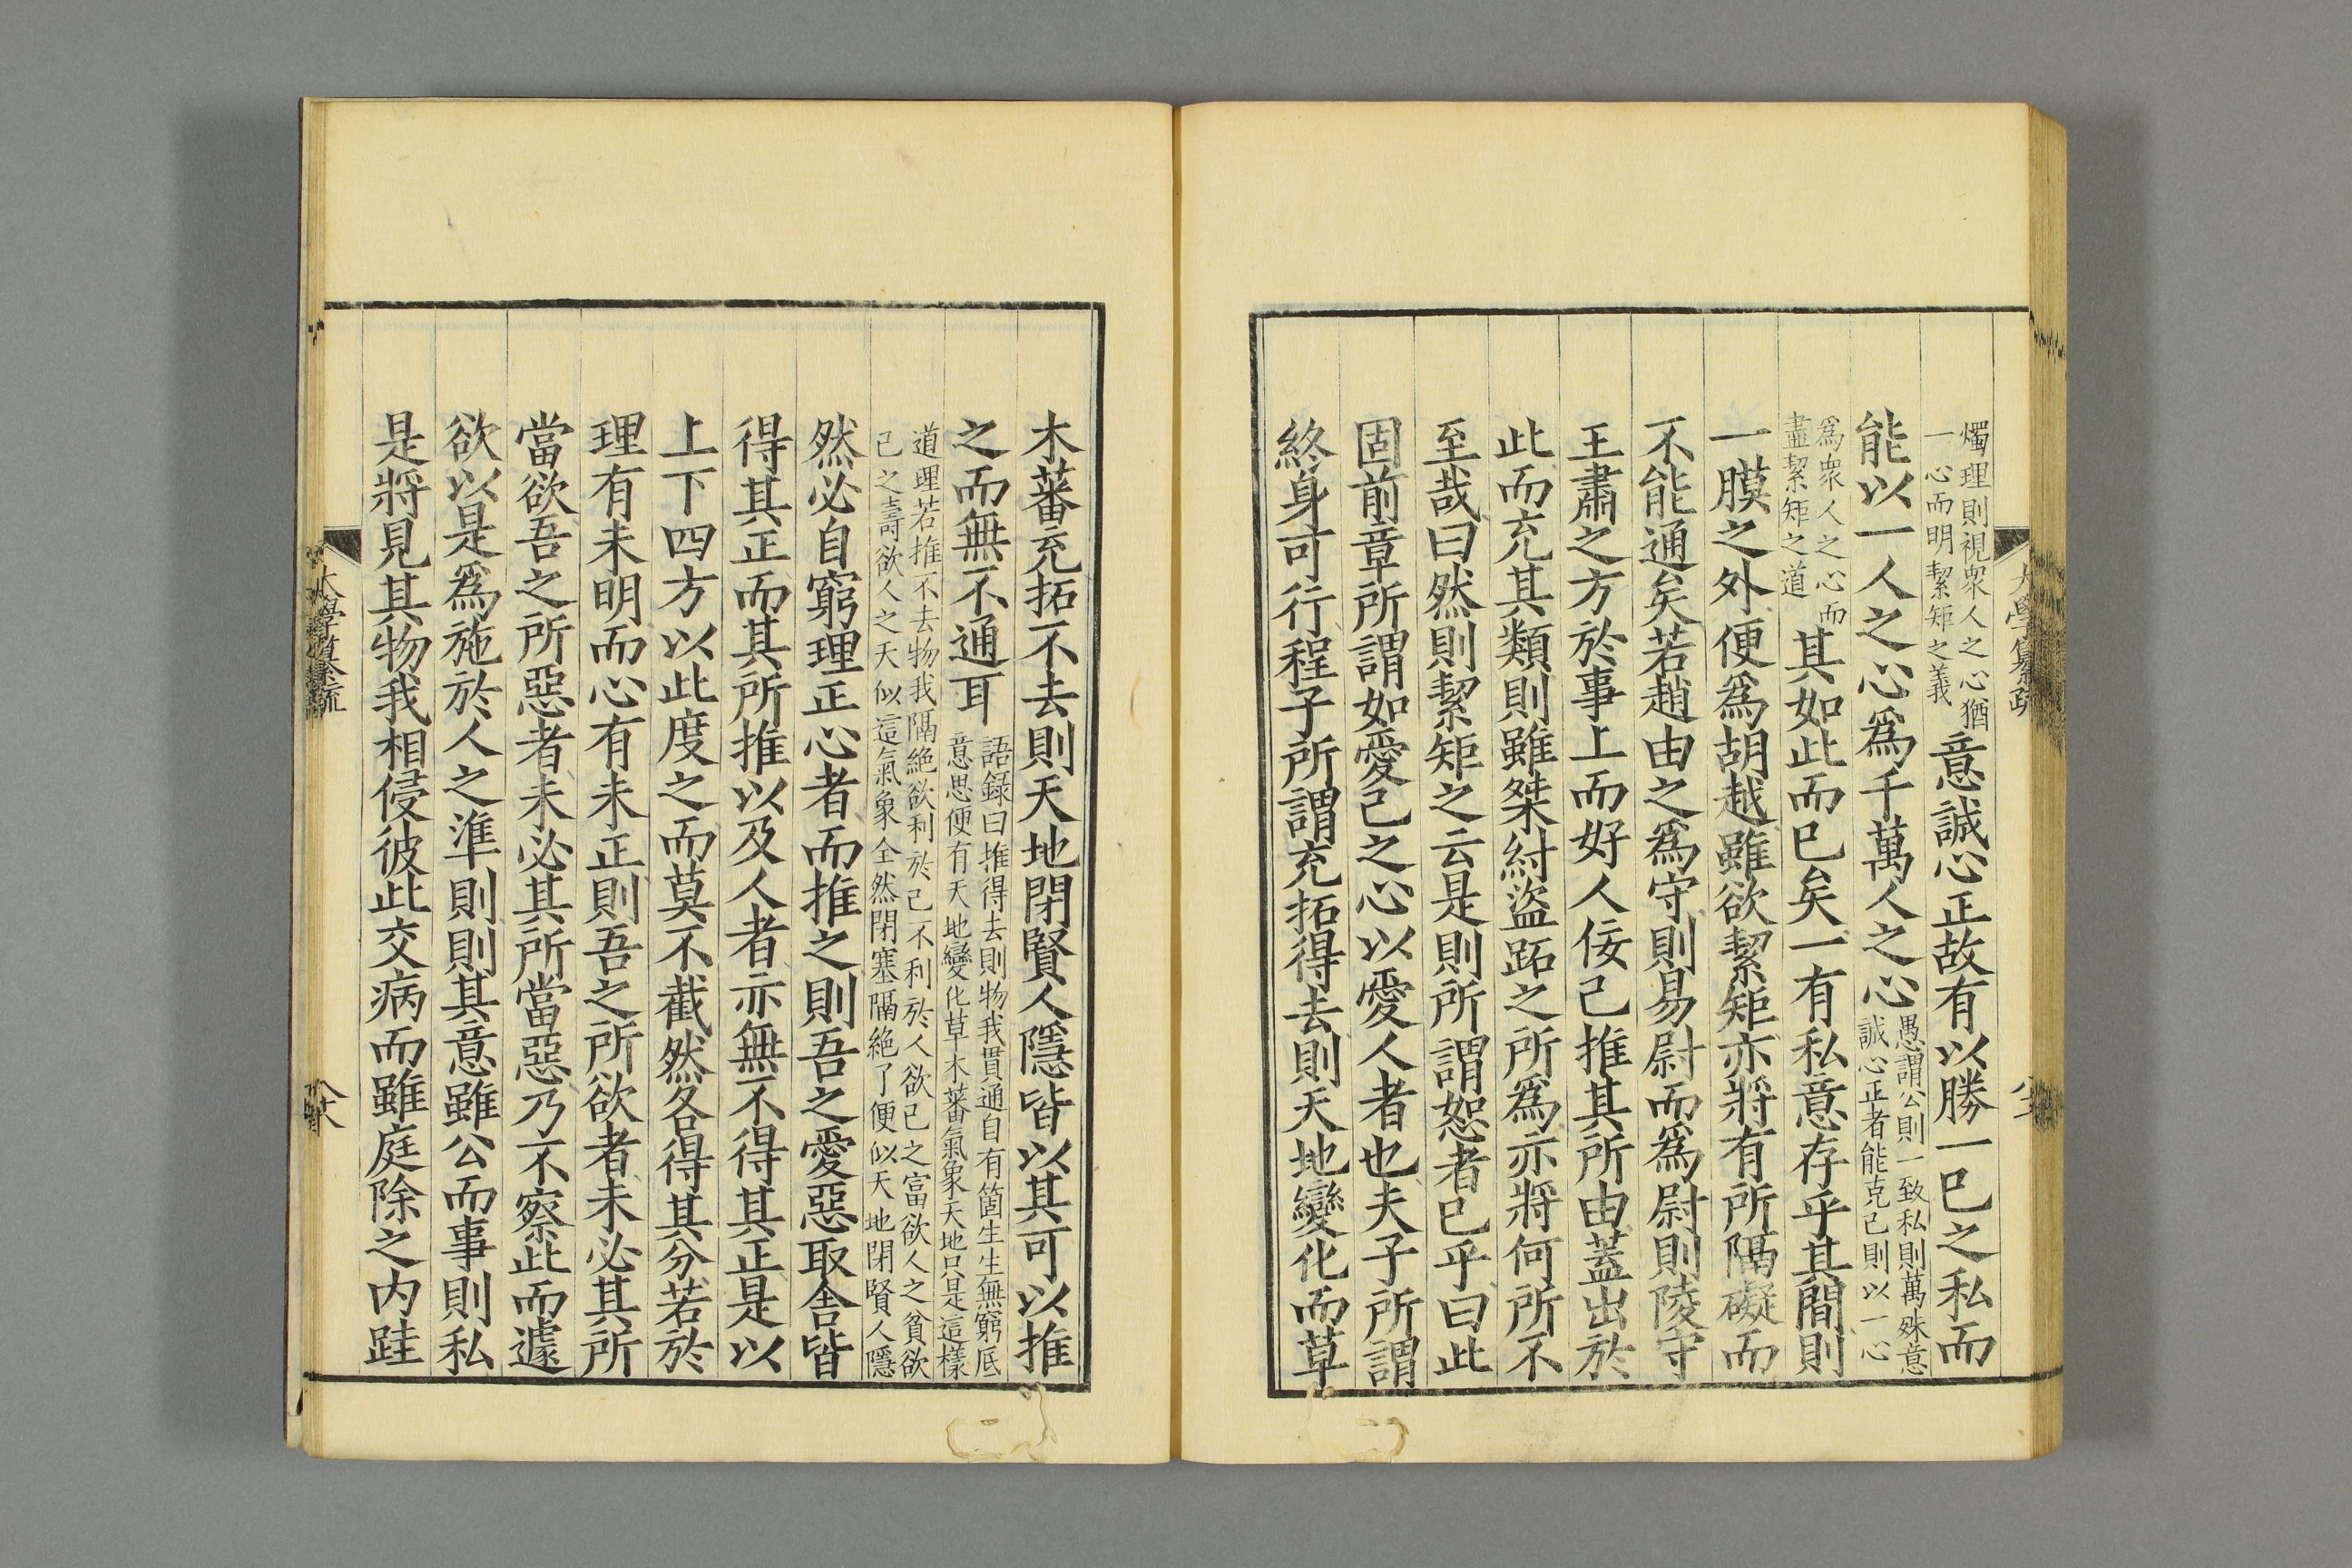 燭理則視衆人之心猶
一心而明絜矩之義
意誠心正故有以勝一已之私而
能以一人之心爲千萬人之心
愚謂公則一致私則萬殊意
誠心正者能克己則以一心
爲衆人之心而
盡絜矩之道
其如此而已矣一有私意存乎其間則
一膜之外便爲胡越雖欲絜矩亦將有所隔礙而
不能通矣若趙由之爲守則易尉而爲尉則陵守
王肅之方於事上而好人佞己推其所由蓋出於
此而充其類則雖桀紂盜跖之所爲亦將何所不
至哉曰然則絜矩之云是則所謂恕者已乎曰此
固前章所謂如愛己之心以愛人者也夫子所謂
終身可行程子所謂充拓得去則天地變化而草
木蕃充拓不去則天地閉賢人隱皆以其可以推
之而無不通耳
語録曰推得去則物我貫通自有箇生生無窮底
意思便有天地變化草木蕃氣象天地只是這樣
道理若推不去物我隔絶欲利於己不利於人欲已之富欲人之貧欲
己之壽欲人之夭似這氣象全然閉塞隔絶了便似天地閉賢人隱
然必自窮理正心者而推之則吾之愛惡取舍皆
得其正而其所推以及人者亦無不得其正是以
上下四方以此度之而莫不截然各得其分若於
理有未明而心有未正則吾之所欲者未必其所
當欲吾之所惡者未必其所當惡乃不察此而遽
欲以是爲施於人之準則則其意雖公而事則私
是將見其物我相侵彼此交病而雖庭除之内跬
大學纂疏